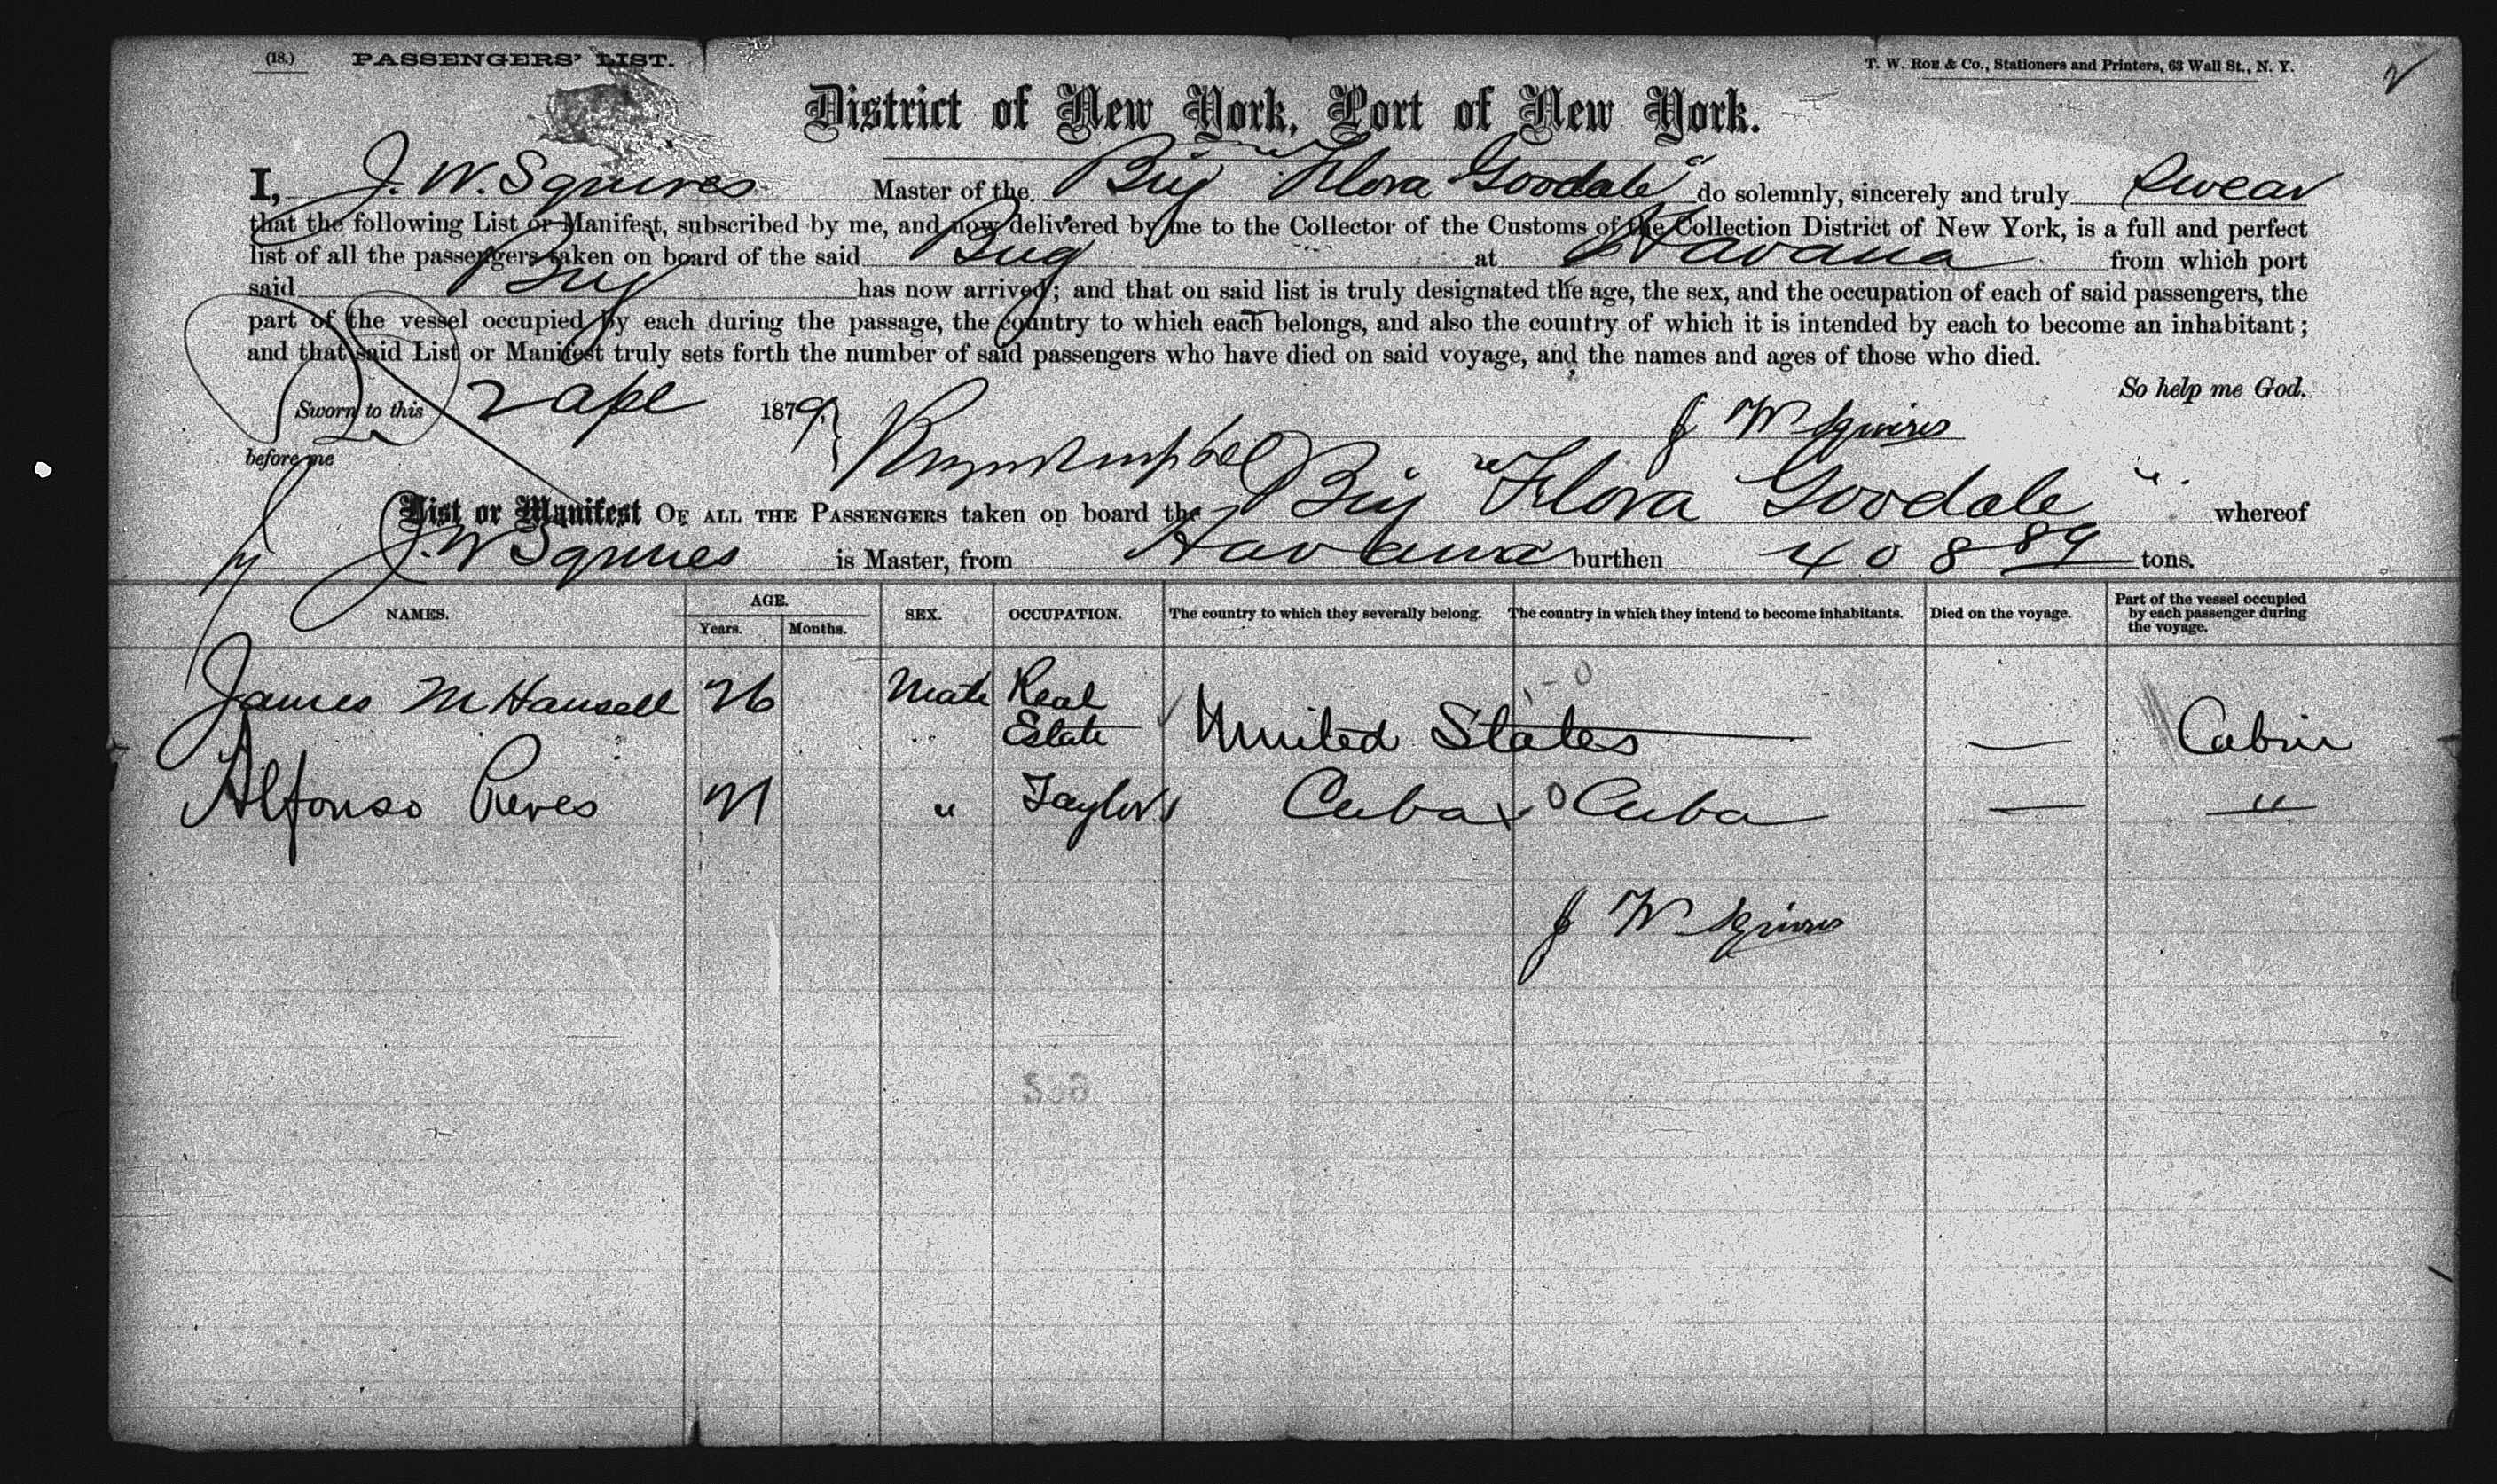 (18.) PASSENGERS' LIST. T. W. Roe & Co., Stationers and Printers, 63 Wall St., N. Y.
District of New York, Port of New York.
I, J. W. Squires Master of the Brig "Flora Goodale" do solemnly, sincerely and truly swear
that the following List or Manifest, subscribed by me, and now delivered by me to the Collector of the Customs of the Collection District of New York, is a full and perfect
list of all the passengers taken on board of the said Brig at Havana from which port
said Brig has now arrived; and that on said list is truly designated the age, the sex, and the occupation of each of said passengers, the
part of the vessel occupied by each during the passage, the country to which each belongs, and also the country of which it is intended by each to become an inhabitant;
and that said List or Manifest truly sets forth the number of said passengers who have died on said voyage, and the names and ages of those who died.
So help me God.
Sworn to this 2 Apl 1879
J W Squires
before me
List or Manifest OF ALL THE PASSENGERS taken on board the Brig "Flora Goodale" whereof
J. W Squires is Master, from Havana burthen 408 89 tons.
NAMES. AGE. Years. Months. SEX. OCCUPATION. The country to which they severally belong. The country in which they intend to become inhabitants. Died on the voyage. Part of the vessel occupied by each passenger during the voyage.
James M Hansell 26 Male Real Estate United States — Cabin
Alfonso 21 " Taylor Cuba 0 Cuba — "
J W Squires